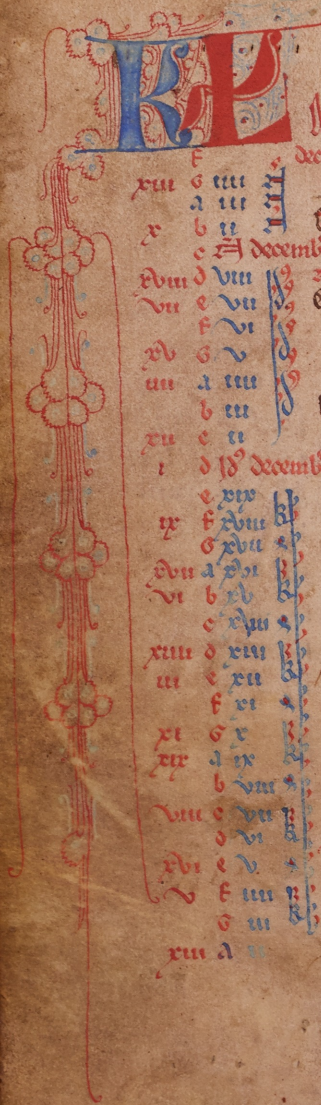 KL
f dec
xiii G iiii N
a iii
x b ii
c N decemb
xviii d viii
vii e vii
f vi
xv G v
iiii a iiii
b iii
xii c ii
i d Id decemb
e xix
ix f xviii
G xvii
xvii a xvi
vi b xv
c xiiii
xiiii d xiii
iii e xii
f xi
xi G x
xix a ix
b viii
viii c vii
d vi
xvi e v
v f iiii
G iii
xiii a ii